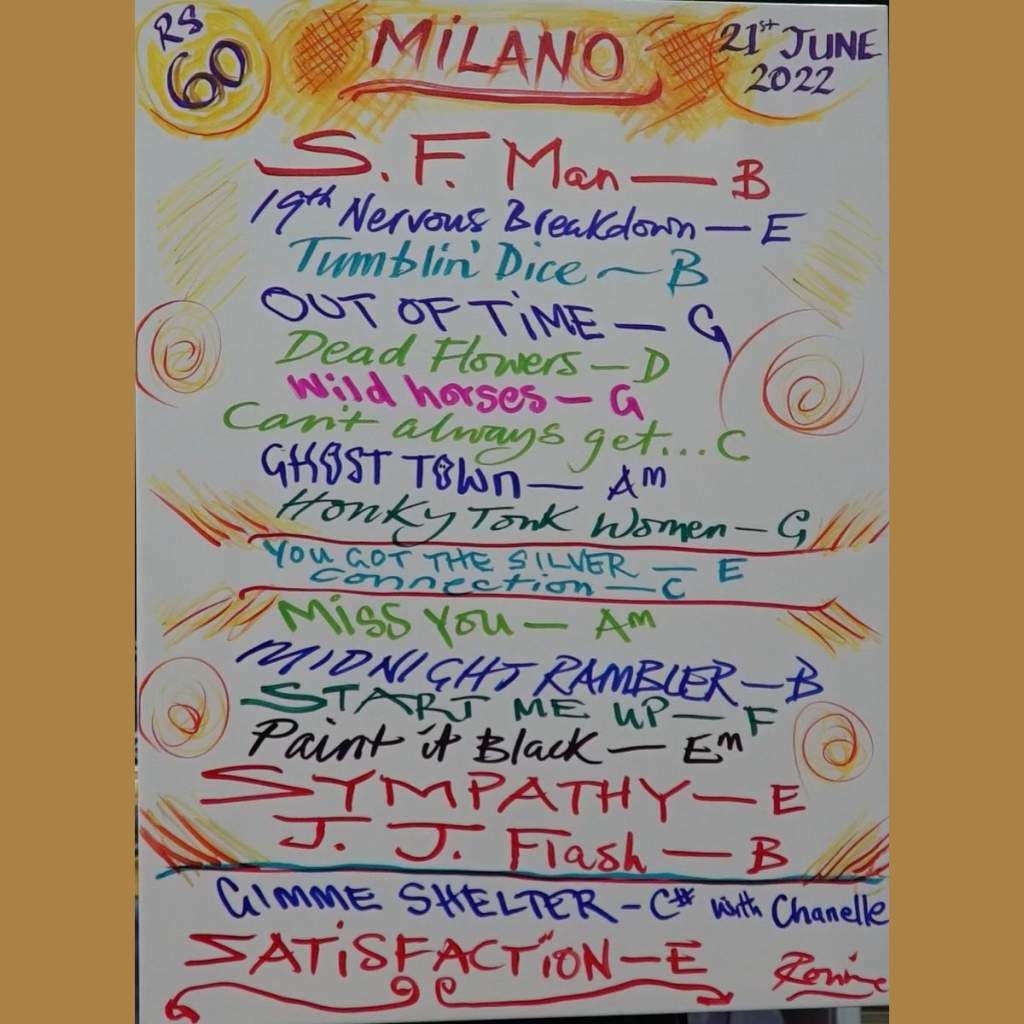 RS
60
MiLANO
21st JUNE
2022
S. F. Man — B
19th Nervous Breakdown — E
Tumblin' Dice ~ B
OUT OF TiME — G
Dead Flowers — D
Wild horses — G
Can't always get... C
GHOST TOWn — Am
Honky Tonk Women — G
YOU GOT THE SILVER — E
connection — C
Miss You — Am
MIDNIGHT RAMBLER — B
START ME UP — F
Paint it Black — Em
SYMPATHY — E
J. J. Flash — B
GIMME SHELTER - C# with Chanelle
SATiSFACTiON — E
Ronnie